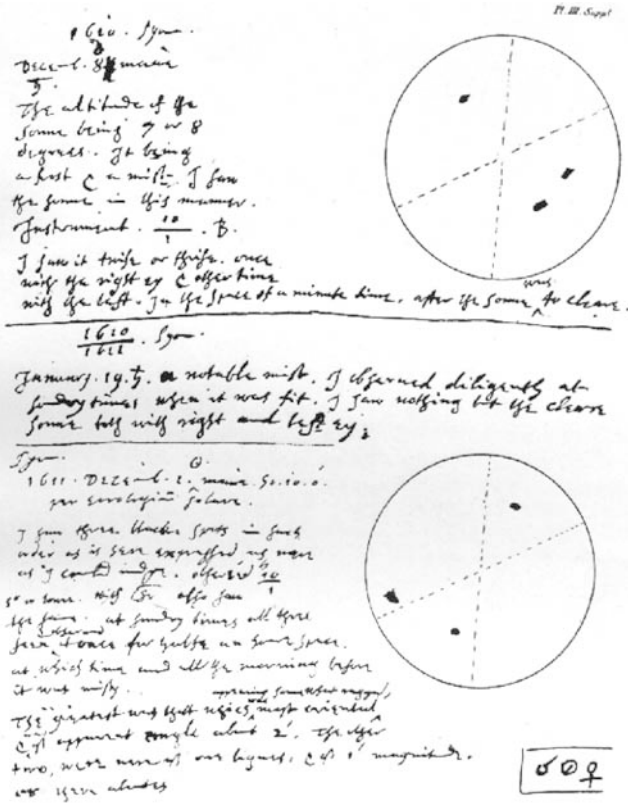 Pl. III. Suppl
1610. Syon.
Decemb. 8 mane
♄.
The altitude of the
Sonne being 7 or 8
degrees. It being
a frost & a mist. I saw
the sonne in this manner.
Instrument. 10/1 . B.
I saw it twise or thrise. once
with the right ey & other time
with the left. In the space of a minute time, after the Sonne was to cleare.
1610/1611 . Syon.
January. 19. ♄. a notable mist. I observed diligently at
sundry times when it was fit. I saw nothing but the cleare
sonne both with right and left ey.
Syon.
☉.
1611. Decemb. 1. mane. Ho. 10. 0'.
per horologium Solare.
I saw three blacke spots in such
order as is here expressed as nere
as I could judge. observed 10/1
also saw
the same. at sundry times all three
seen at once for halfe an houre space.
at which time and all the morning before
it was misty.
appearing somewhat ragged,
The greatest was that which was most oriental
& of apparent angle about 2'. The other
two, were nere of one bignes, & of 1' magnitude.
or there abouts
♂ ☉ ♀